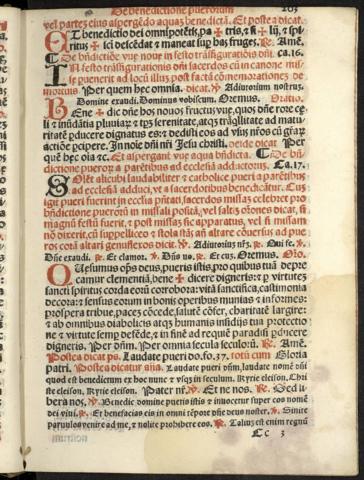 De benedictione puerorum 203
vel partez eius aspergēdo aquaz benedictā. Et postea dicat.
ET benedictio dei omnipotētis, pa ✠ tris, ⁊ fi ✠ lij, ⁊ spi-
ritus ✠ sci descēdat ⁊ maneat sup has fruges. ℟. Amē.
De bn̄dictiōe vue noue in festo trāsfiguratiōis dn̄i. ca. 16.
IN festo trāsfiguratiōnis dn̄i sacerdos cū in canone mis-
se puenerit ad locū illuz post factā cōmemorationez de
mortuis. Per quem hec omnia. dicat. ℣ Adiutorium nostruz.
Domine exaudi. Dominus vobiscum. Oremus. Oratio.
BEne ✠ dic dn̄e hos nouos fructus vue, quos dn̄e rore ce-
li ⁊ inūdātia pluuiaꝝ ⁊ tp̄ꝝ serenitate, atqz trāq̄llitate ad matu-
ritatē pducere dignatus es: ⁊ dedisti eos ad vsus nr̄os cū gr̄aꝝ
actiōe pcipere. In noīe dn̄i nr̄i Jesu christi. deide dicat Per
quē hec oīa ⁊c. Et aspergant vue aqua bn̄dicta. De bn̄-
dictione pueroꝝ a parētibus ad ecclesiā adductorum. Ca. 17.
SOlēt alicubi laudabiliter ⁊ catholice pueri a parētibus
ad ecclesiā adduci, vt a sacerdotibus benedicātur. Cuz
igit pueri fuerint in ecclīa pn̄tati, sacerdos missaz celebret pro
bn̄dictione pueroꝝ in missali positā, vel saltez orōnes dicat, si
magnū festū fuerit, ⁊ post missaz sic apparatus, vel si missam
nō dixerit, cū suppelliceo ⁊ stola stās añ altare cōuersus ad pue
ros corā altari genuflexos dicit. ℣. Adiutoriū nr̄ꝫ. ℟. Qui fe. ℣.
Dn̄e exaudi. ℟. Et clamor. ℣. Dn̄s vo. ℟. Et cuz. Oremus. Oro.
QUesumus op̄s deus, pueris istis, pro quibus tuā depre-
camur clementiā, bene ✠ dicere digneris: ⁊ p virtutez
sancti spiritus corda eorū corrobora: vitā sanctifica, castimonia
decora: ⁊ sensus eorum in bonis operibus munias ⁊ informes:
prospera tribue, pacez cōcede, salutē cōfer, charitatē largire:
⁊ ab omnibus diabolicis atqz humanis insidijs tua protectio-
ne ⁊ virtute semp defēde, ⁊ in fine ad requiē paradisi pducere
digneris. Per dn̄m. Per omnia secula seculoꝝ. ℟. Amē.
Postea dicat ps. Laudate pueri do. fo. 37. totū cum Gloria
patri. Postea dicatur ān̄a. Laudate pueri dn̄m, laudate nomē dn̄i
quod est benedictum ex hoc nunc ⁊ vsqz in seculum. Kyrie eleison, Chri
ste eleison, Kyrie eleison. Pater nr̄. ℣ Et ne nos. ℟. Sed li
bera nos. ℣. Benedic domine pueris istis ⁊ innocetur super eos nomē
dei viui. ℟. Et benefacias eis in omni tēpore dn̄e deus noster. ℣. Sinite
paruulos venire ad me, ⁊ nolite prohibere eos. ℟. Taliuz est enim regnū
Cc 3